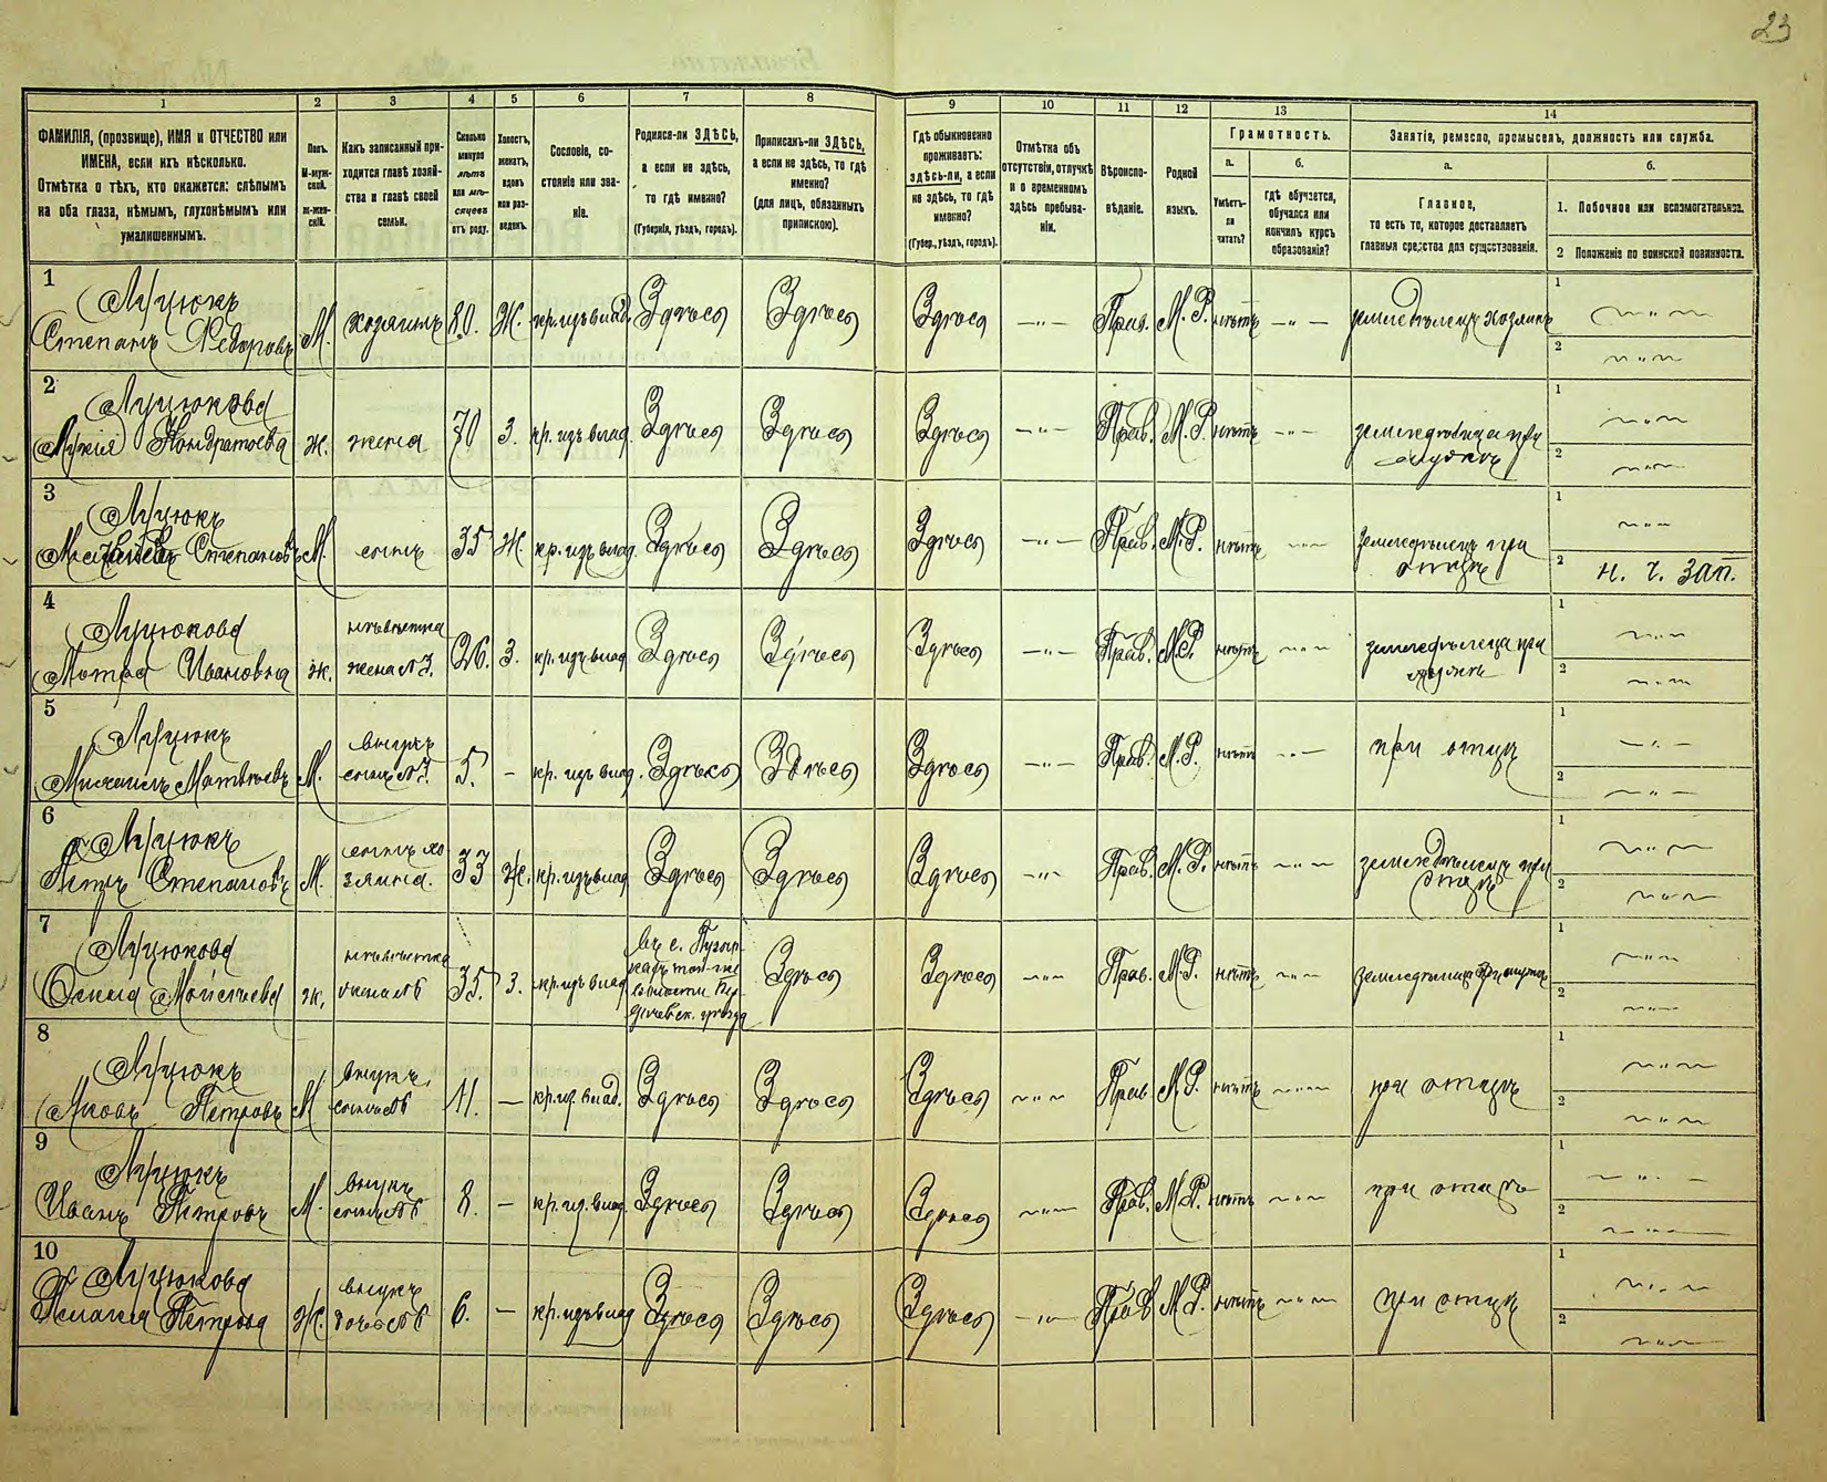 23
1 2 3 4 5 6 7 8 9 10 11 12 13 14
ФАМИЛІЯ, (прозвище), ИМЯ и ОТЧЕСТВО или
ИМЕНА, если ихъ нѣсколько.
Отмѣтка о тѣхъ, кто окажется: слѣпымъ
на оба глаза, нѣмымъ, глухонѣмымъ или
умалишеннымъ.
Полъ.
М-муж-
ской.
ж-жен-
скій.
Какъ записанный при-
ходится главѣ хозяй-
ства и главѣ своей
семьи.
Сколько
минуло
лѣтъ
или мѣ-
сяцевъ
отъ роду.
Холостъ,
женатъ,
вдовъ
или раз-
веденъ.
Сословіе, со-
стояніе или зва-
ніе.
Родился-ли ЗДѢСЬ,
а если не здѣсь,
то гдѣ именно?
(Губернія, уѣздъ, городъ).
Приписанъ-ли ЗДѢСЬ,
а если не здѣсь, то гдѣ
именно?
(для лицъ, обязанныхъ
припискою).
Гдѣ обыкновенно
проживаетъ:
здѣсь-ли, а если
не здѣсь, то гдѣ
именно?
(Губер., уѣздъ, городъ).
Отмѣтка объ
отсутствіи, отлучкѣ
и о временномъ
здѣсь пребыва-
ніи.
Вѣроиспо-
вѣданіе.
Родной
языкъ.
Грамотность.
а.
Умѣетъ-
ли
читать?
б.
Гдѣ обучается,
обучался или
кончилъ курсъ
образованія?
Занятіе, ремесло, промыселъ, должность или служба.
а.
Главное,
то есть то, которое доставляетъ
главныя средства для существованія.
б.
1. Побочное или вспомогательное.
2 Положеніе по воинской повинности.
1
Луцюкъ
Степанъ Федоровъ М. хозяинъ 80. Ж. кр. изъ влад. Здѣсь Здѣсь Здѣсь —"— Прав. М. Р. нѣтъ —"— земледѣлецъ хозяинъ
1
2
2
Луцюкова
Кондратоева ж. жена 70 З. кр. изъ влад. Здѣсь Здѣсь Здѣсь —"— Прав. М. Р. нѣтъ —"—
1
2
3
Луцюкъ
Степановъ М. сынъ 35 Ж. кр. изъ влад. Здѣсь Здѣсь Здѣсь —"— Прав. М. Р. нѣтъ земледѣлецъ при
отцѣ
1
2 н. ч. зап.
4
Луцюкова
Мотря Ивановна ж. невѣстка
жена №3. 26. З. кр. изъ влад Здѣсь Здѣсь Здѣсь —"— Прав. М. Р. нѣтъ
1
2
5
Луцюкъ
Михаилъ Матвѣевъ М. внукъ
сынъ №3. 5. - кр. изъ влад. Здѣсь Здѣсь Здѣсь —"— Прав. М. Р. нѣтъ при отцѣ
1
2
6
Луцюкъ
Петръ Степановъ М. сынъ хо
зяина. 33 Ж. кр. изъ влад Здѣсь Здѣсь Здѣсь —"— Прав. М. Р. нѣтъ земледѣлецъ при
отцѣ
1
2
7
Луцюкова
Моисѣева ж. невѣстка
жена №6 35. З. кр. изъ влад Здѣсь Здѣсь —"— Прав. М. Р. нѣтъ
1
2
8
Луцюкъ
Яковъ Петровъ М внукъ,
сынъ №6 11. — кр. из. влад. Здѣсь Здѣсь Здѣсь Прав. М. Р. нѣтъ при отцѣ
1
2
9
Луцюкъ
Иванъ Петровъ М. внукъ
сынъ №6 8. - кр. из. влад. Здѣсь Здѣсь Здѣсь Прав. М. Р. нѣтъ при отцѣ
1
2
10
Луцюкова
Петрова Ж. внука
дочь №6 6. — кр. изъ влад Здѣсь Здѣсь Здѣсь Прав М. Р. нѣтъ при отцѣ
1
2